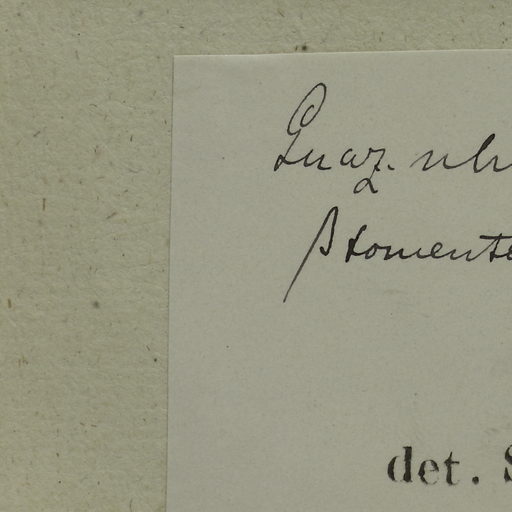 Guaz. ulm
β tomento
det. S